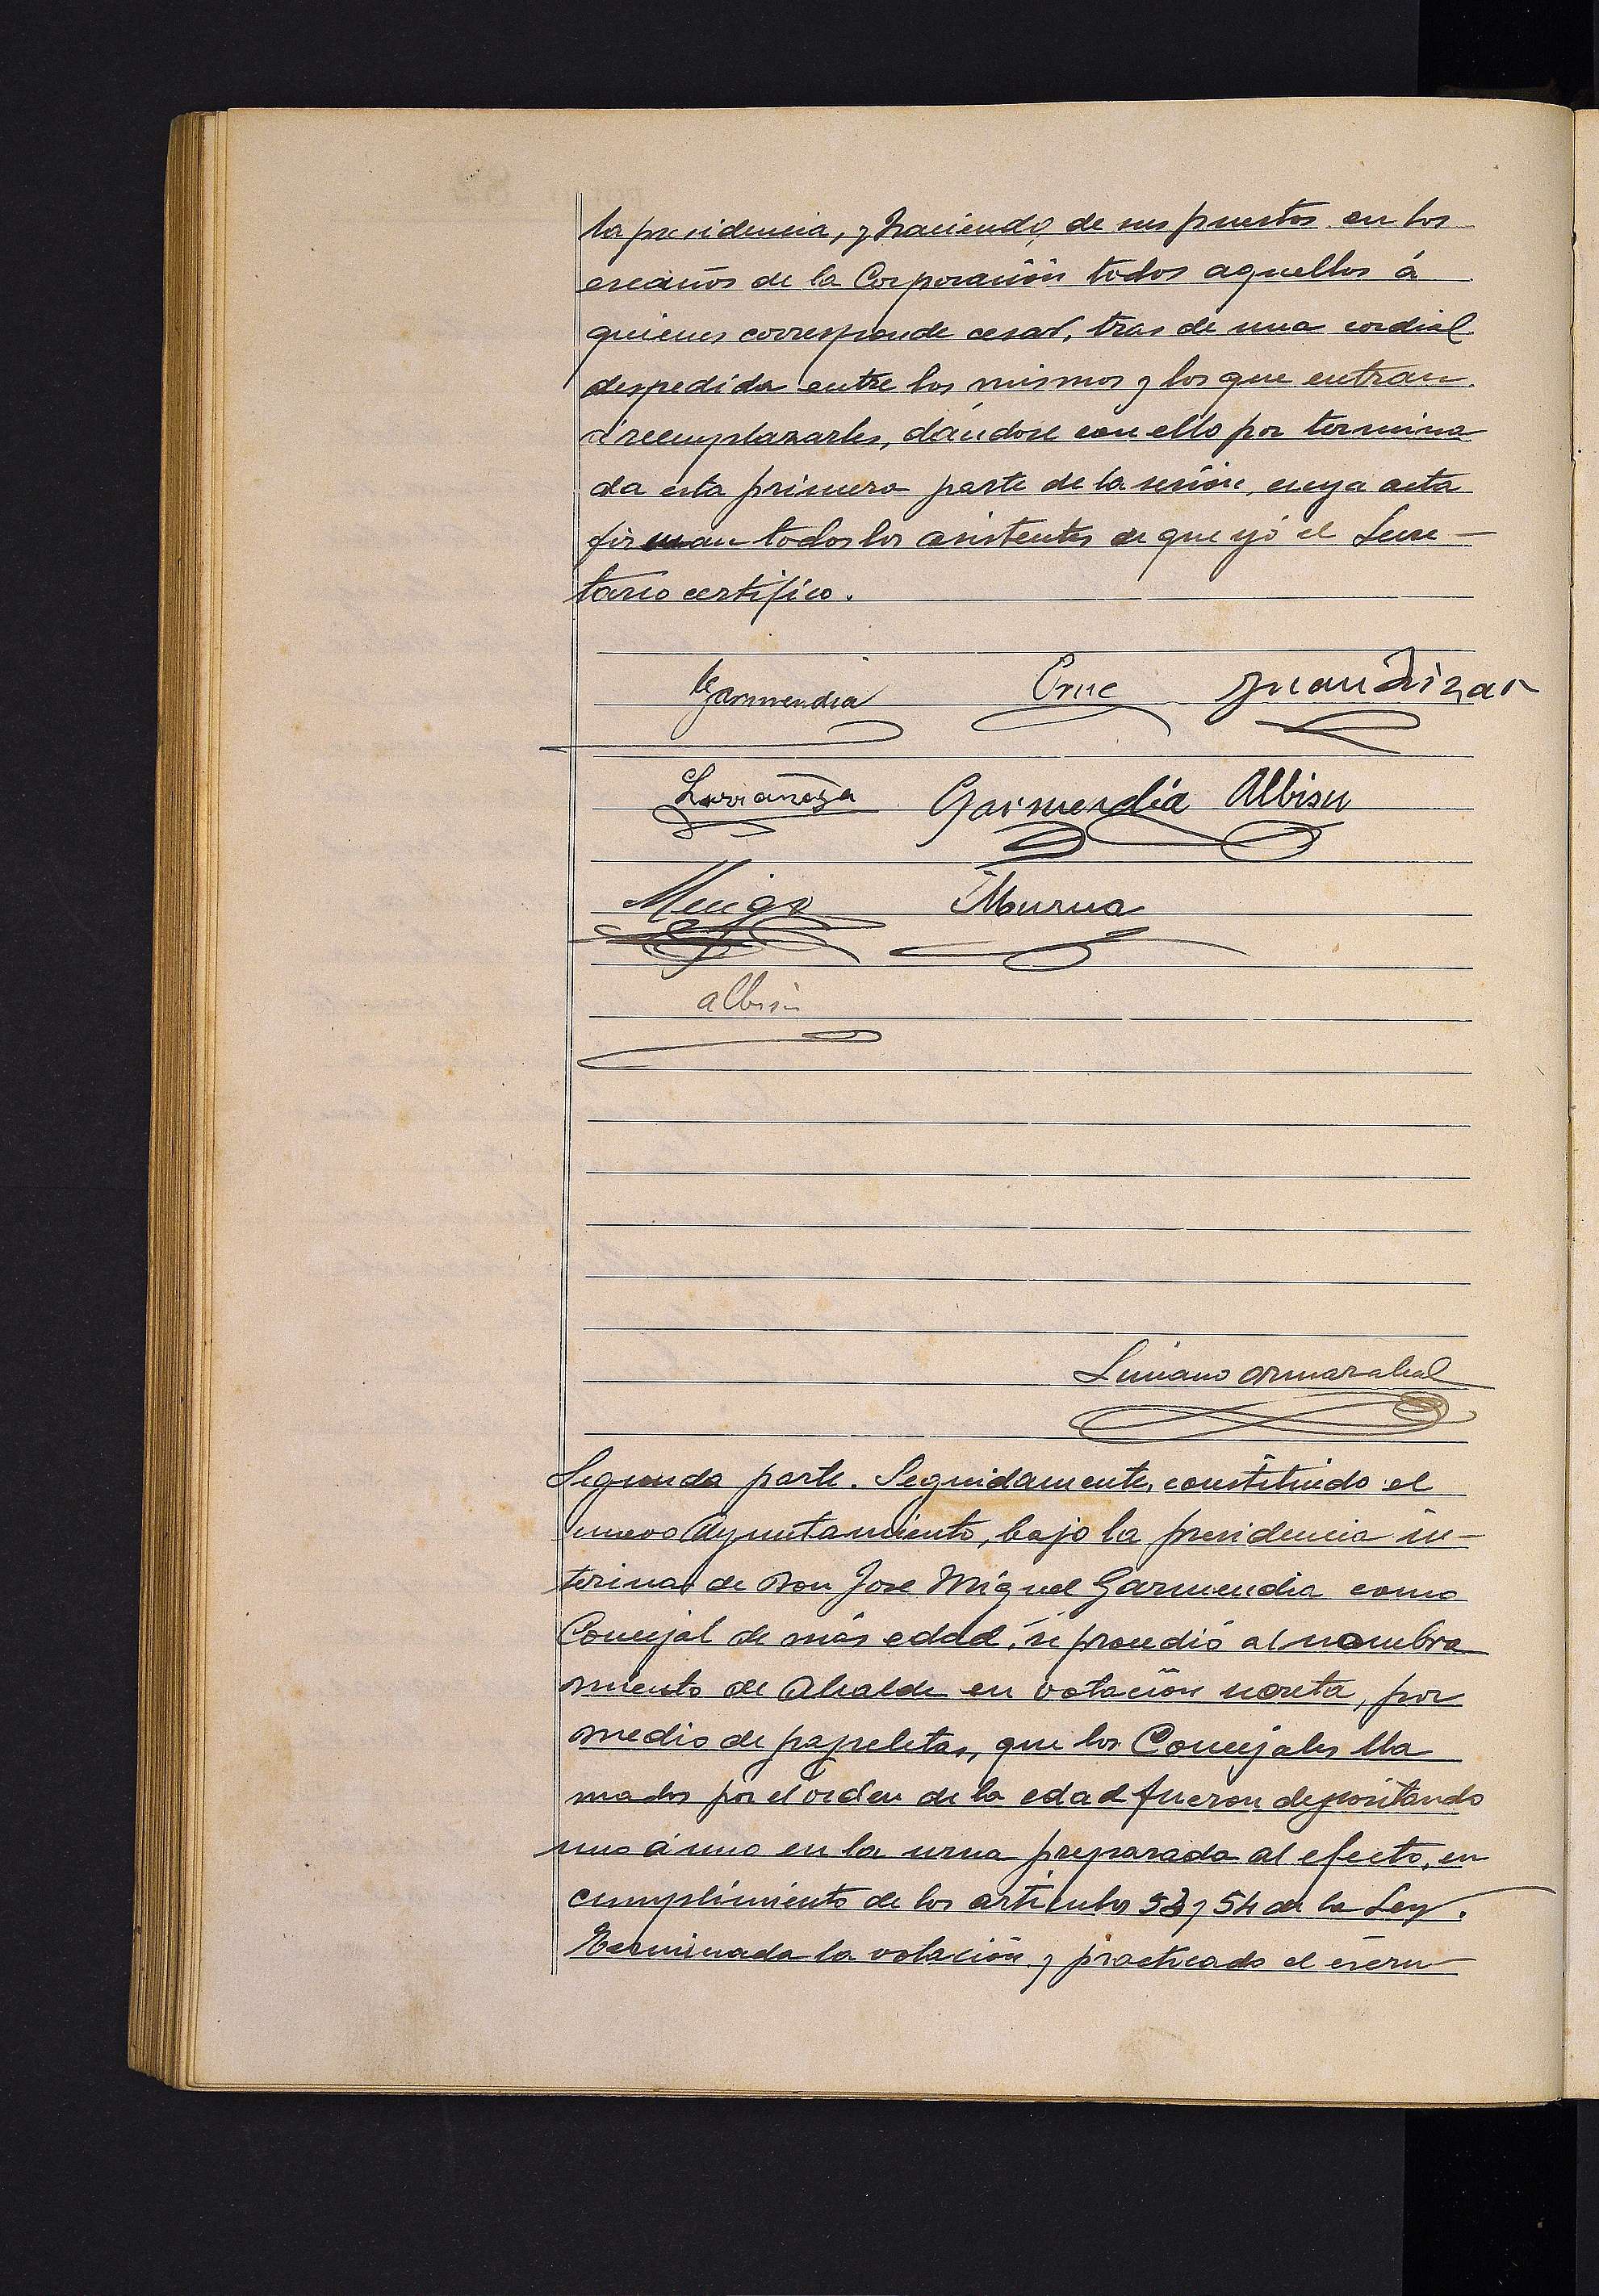 la presidencia, y haciendo de sus puestos en los
escaños de la Corporación todos aquellos á
quienes corresponde cesar, tras de una cordial
despedida entre los mismos y los que entran
á reemplazarles, dándose con ello por termina
da esta primera parte de la sesión, cuya acta
firman todos los asistentes de que yó el Secre-
tario certifico.
Garmendia Juan Dizar
Larrañaga Garmendia Albisu
Murua
albisu
Luciano
Segunda parte. Seguidamente, constituido el
nuevo Ayuntamiento, bajo la presidencia in-
terina de Don Jose Miguel Garmendia como
Concejal de más edad, se procedió al nombra
miento de Alcalde en votación secreta, por
medio de papeletas, que los Concejales lla
mados por el orden de la edad fueron depositando
uno á uno en la urna preparada al efecto, en
cumplimiento de los articulos 53 y 54 de la Ley.
Terminada la votación y practicado el escru-